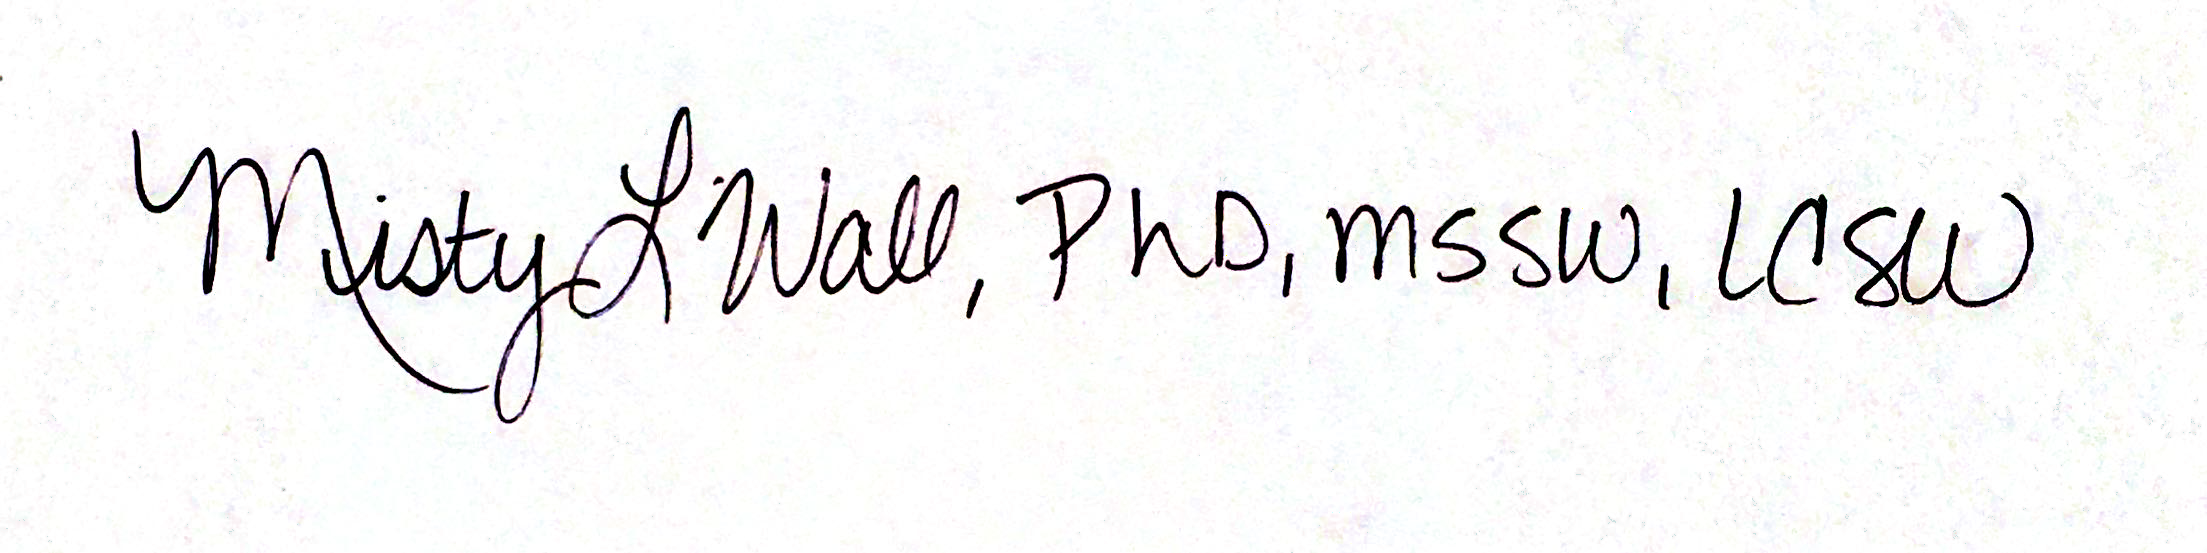 Misty L Wall, PhD, MSSW, LCSW